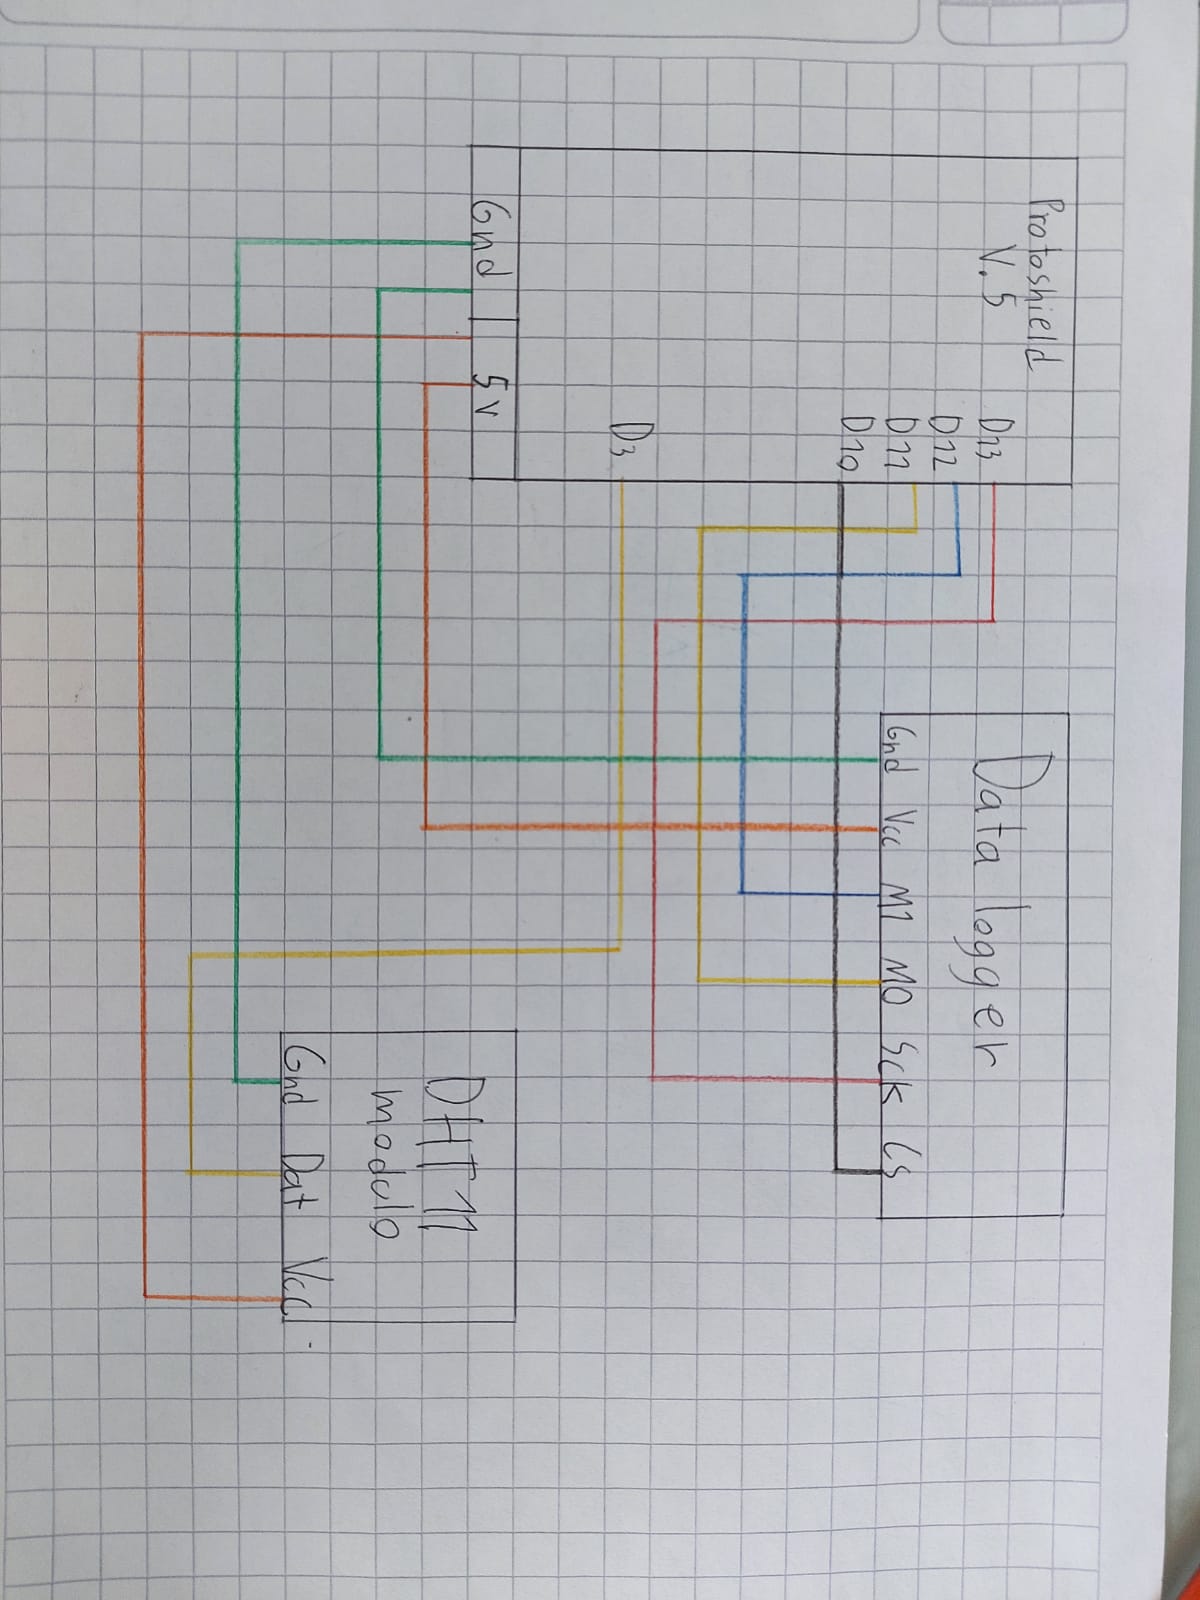 Protoshield
V.5
D13
D12
D11
D10
D3
Gnd
5v
Data logger
Gnd Vcc M1 M0 Sck Cs
DHT11
modulo
Gnd Dat Vcc